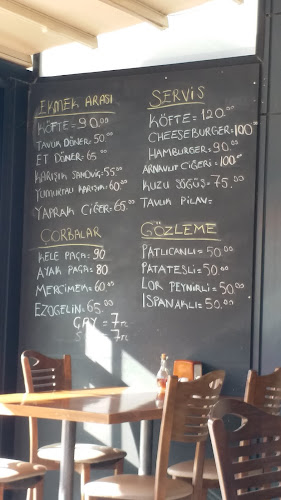 EKMEK ARASI
KÖFTE=90.00
TAVUK DÖNER=50.00
ET DÖNER=65.00
KARIŞIK SANDVİÇ=55.00
YUMURTALI KARIŞIK=60.00
YAPRAK CİĞER=65.00
ÇORBALAR
KELE PAÇA=90
AYAK PAÇA=80
MERCİMEK=60.00
EZOGELİN=65.00
ÇAY=7TL
7TL
SERVİS
KÖFTE=120.00
CHEESEBURGER=100.00
HAMBURGER=90.00
ARNAVUT CİĞERİ=100.00
KUZU SÖĞÜŞ=75.00
TAVUK PİLAV=
GÖZLEME
PATLICANLI=50.00
PATATESLİ=50.00
LOR PEYNİRLİ=50.00
ISPANAKLI=50.00